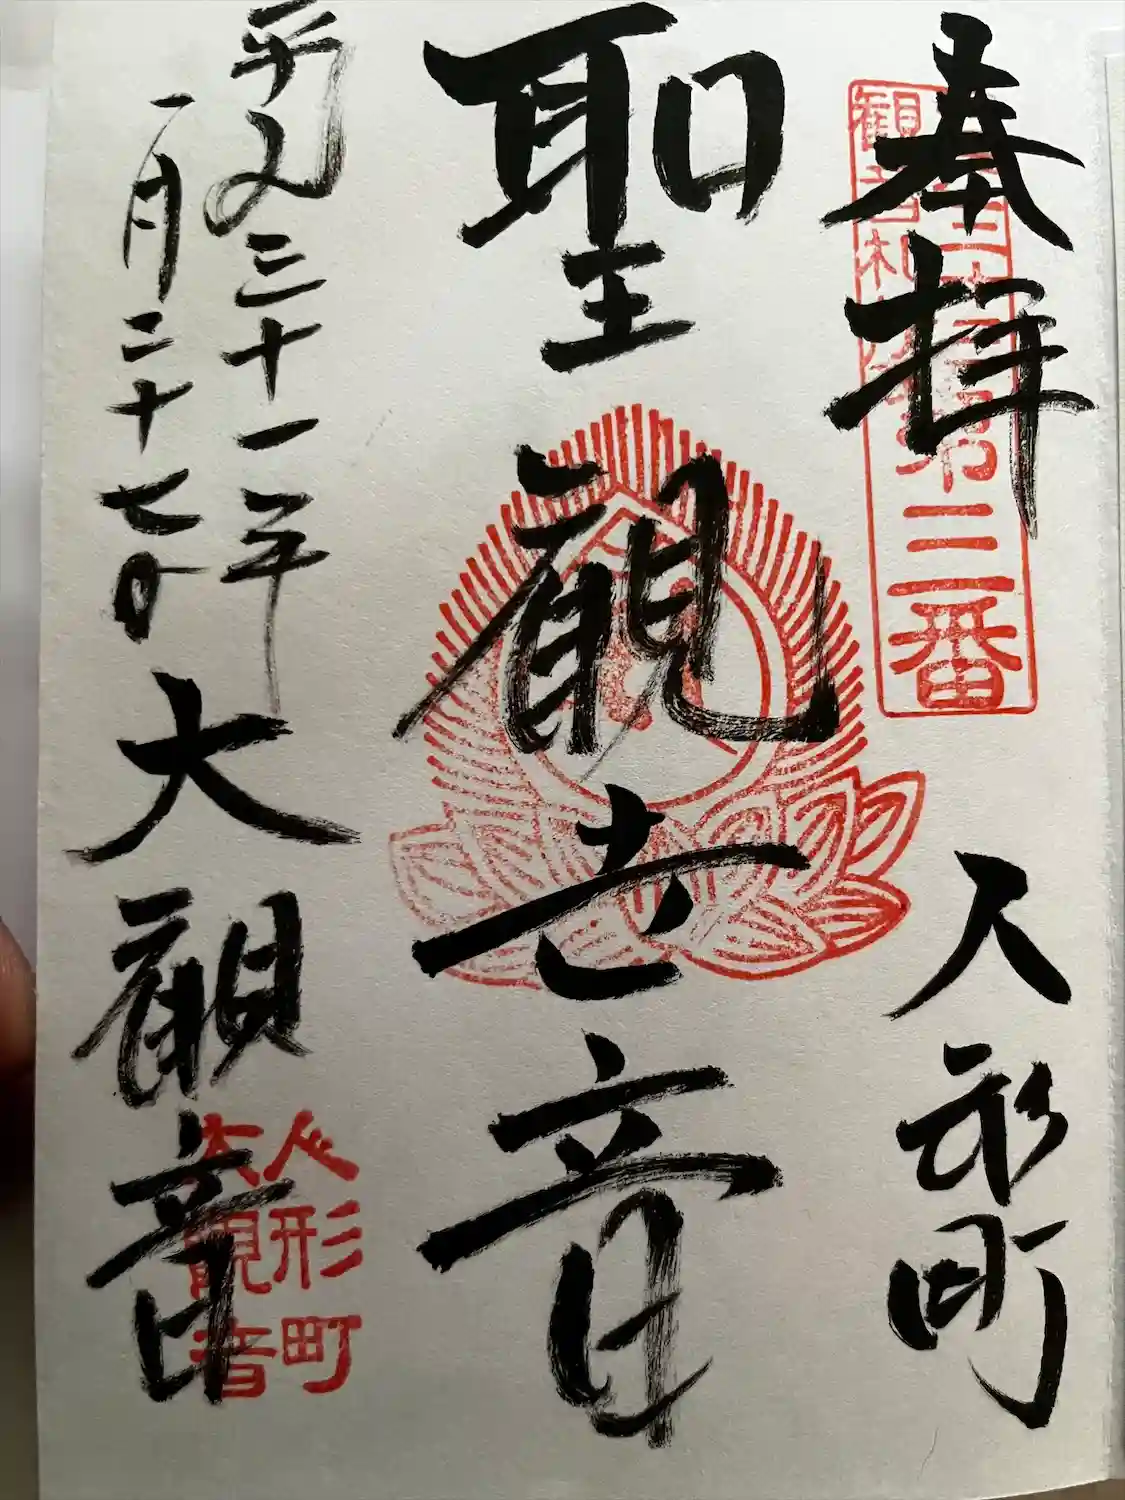 奉拝
人形町
第三番
聖観世音
平成三十一年
一月二十七日
大観音
人形町
大観音